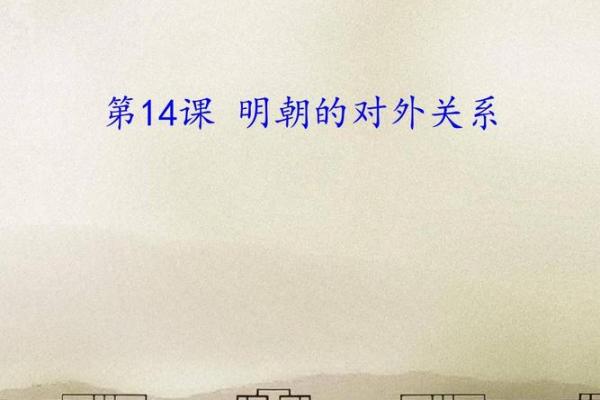 第14课 明朝的对外关系